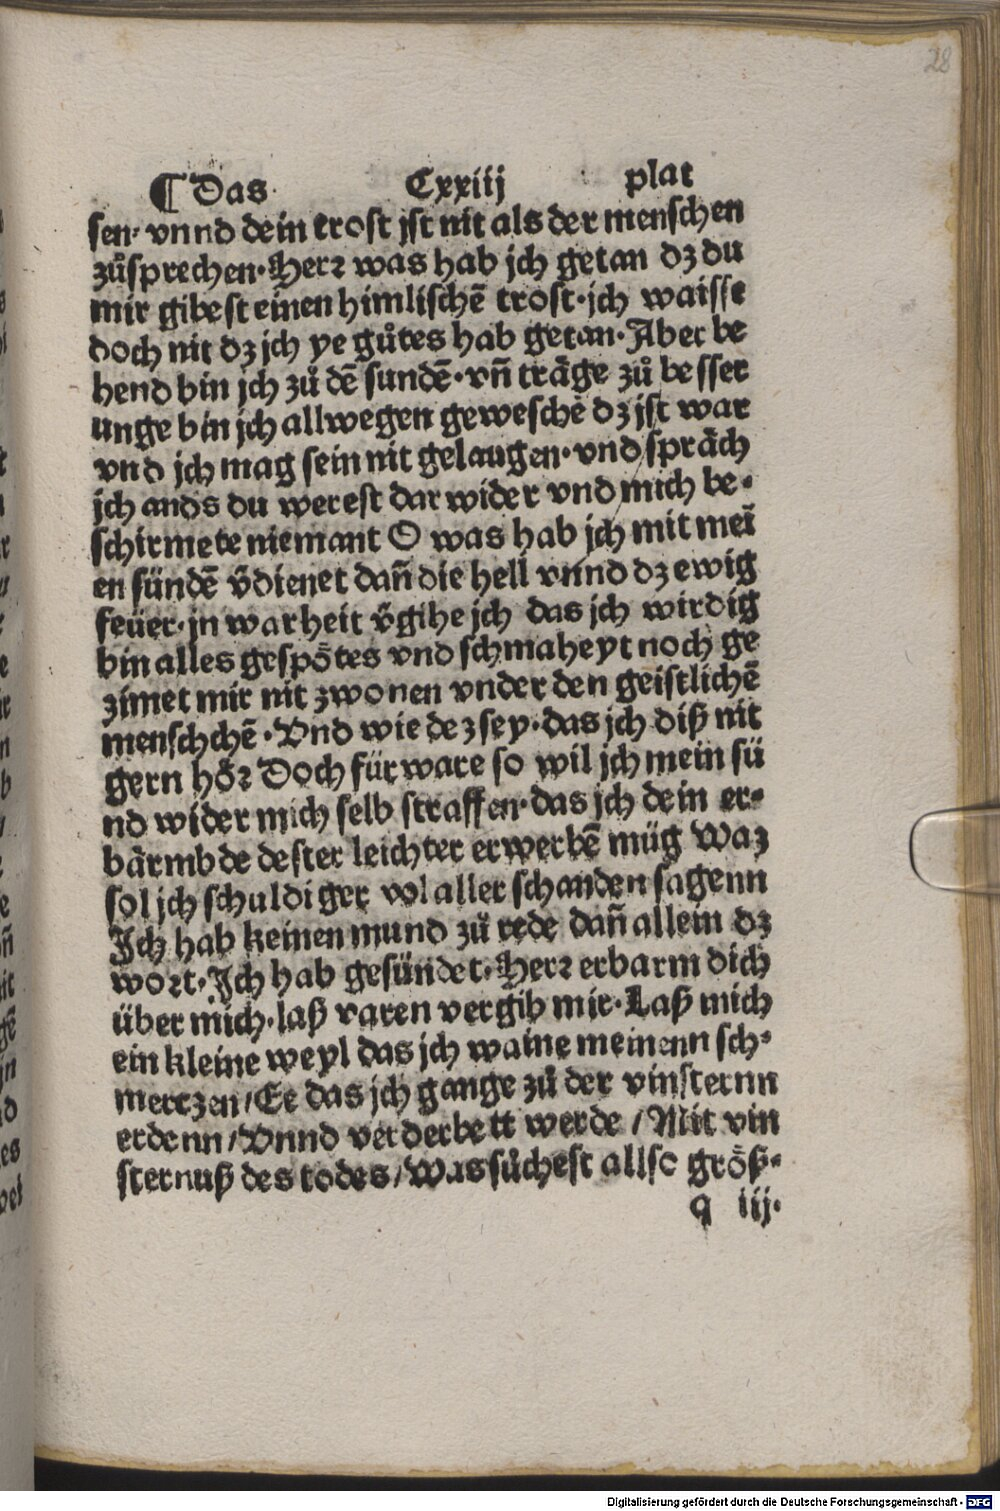 28
¶ Das Cxxiij plat
sen· vnnd dein trost jst nit als der menschen
zůsprechen·Herꝛ was hab jch getan dz du
mir gibest einen himlischē trost·jch waisse
doch nit dz jch ye gůtes hab getan·Aber be
hend bin jch zů dē sundē·vn̄ träge zů besser
unge bin jch allwegen geweschē dz jst war
vnd jch mag sein nit gelaugen·vnd spräch
jch ands du werest darwider vnd mich be⸗
schirmete niemant O was hab jch mit mei
en sündē v̄dienet dan̄ die hell vnnd dz ewig
feüer·jn warheit v̄gihe jch das jch wirdig
bin alles gespötes vnd schmaheyt noch ge
zimet mir nit zwonen vnder den geistlichē
menschchē·Vnd wie dez sey·das jch diß nit
gern höꝛ Doch fürware so wil jch mein sü
nd wider mich selb straffen·das jch dein er⸗
bärmbde dester leichter erwerbē müg Waz
sol jch schuldiger vol aller schanden sagenn
Jch hab keinen mund zů rede dan̄ allein dz
woꝛt·Jch hab gesündet·Herꝛ erbarm dich
über mich·laß varen vergib mir·Laß mich
ein kleine weyl das jch waine meinenn sch⸗
mertzen/Ee das jch gange zů der vinsternn
erdenn/Vnnd verderbett werde /Mit vin
sternuß des todes/Was sůchest allso größ⸗
q iij·
Digitalisierung gefördert durch die Deutsche Forschungsgemeinschaft - DFG